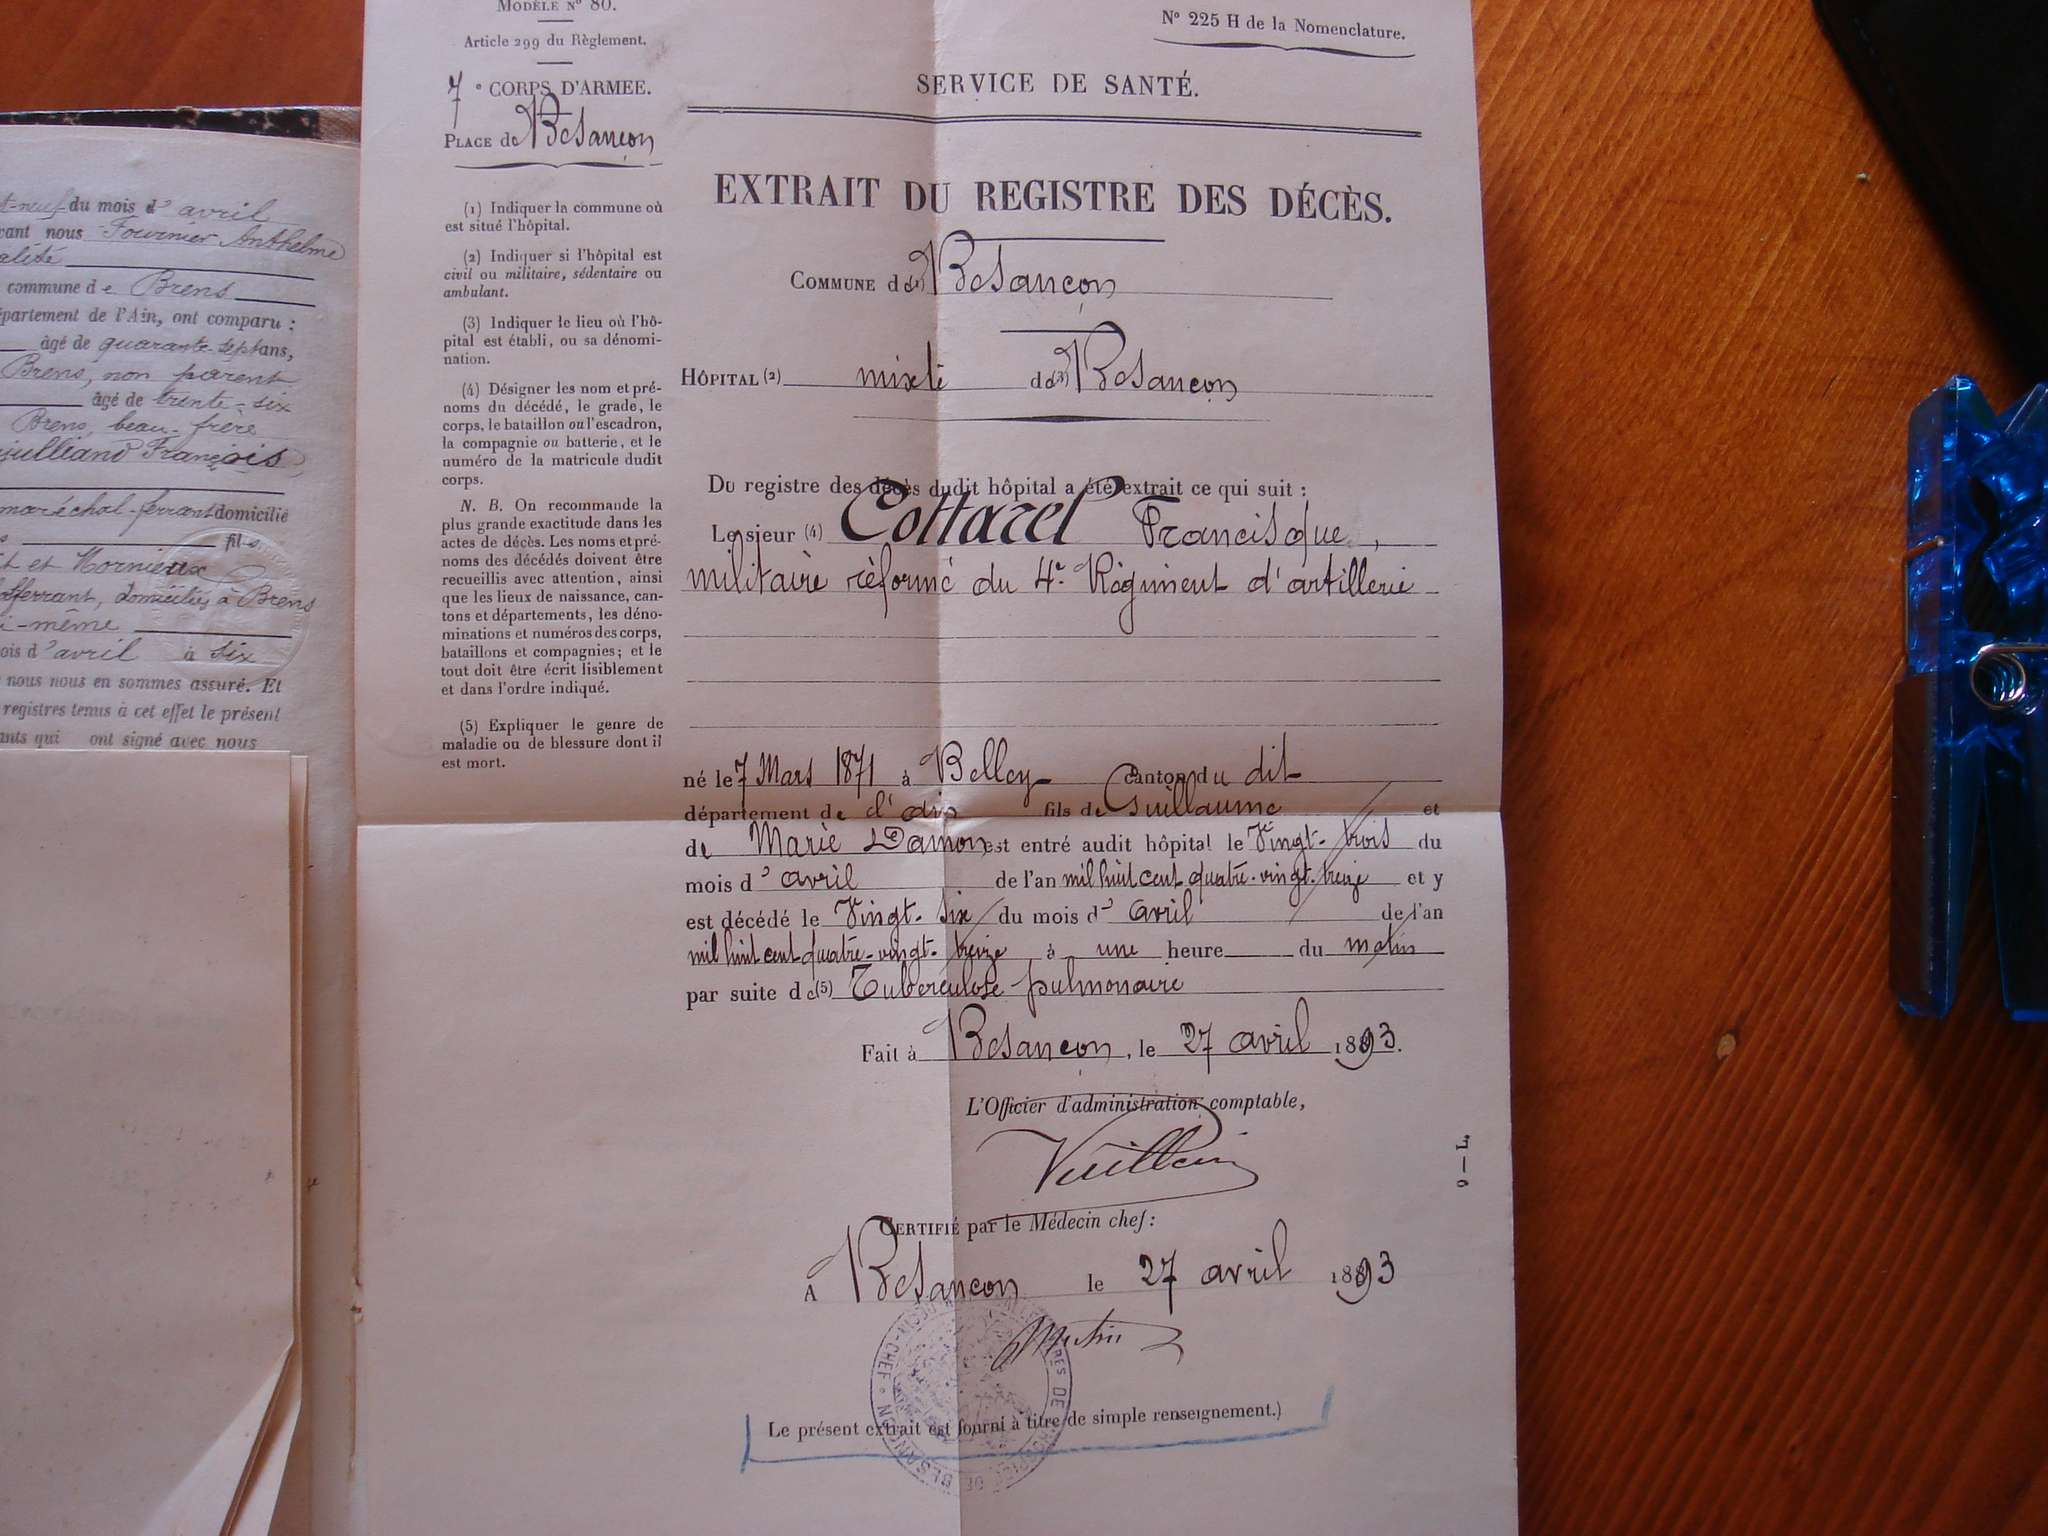 t-neuf du mois d'avril
vant nous Fournier Anthelme
alité
commune de Brens
épartement de l'Ain, ont comparu :
âgé de quarante-sept ans,
Brens, non parent
âgé de trente-six
Brens, beau-frère
François
maréchal-ferrant domicilié
fils
et Mornieux
ferrant, domiciliés à Brens
i-même
ois d'avril à six
nous nous en sommes assuré. Et
registres tenus à cet effet le présent
ants qui ont signé avec nous
MODÈLE N° 80.
Article 299 du Règlement.
7e CORPS D'ARMEE.
PLACE de Besançon
(1) Indiquer la commune où
est situé l'hôpital.
(2) Indiquer si l'hôpital est
civil ou militaire, sédentaire ou
ambulant.
(3) Indiquer le lieu où l'hô-
pital est établi, ou sa dénomi-
nation.
(4) Désigner les nom et pré-
noms du décédé, le grade, le
corps, le bataillon ou l'escadron,
la compagnie ou batterie, et le
numéro de la matricule dudit
corps.
N. B. On recommande la
plus grande exactitude dans les
actes de décès. Les noms et pré-
noms des décédés doivent être
recueillis avec attention, ainsi
que les lieux de naissance, can-
tons et départements, les déno-
minations et numéros des corps,
bataillons et compagnies; et le
tout doit être écrit lisiblement
et dans l'ordre indiqué.
(5) Expliquer le genre de
maladie ou de blessure dont il
est mort.
N° 225 H de la Nomenclature.
SERVICE DE SANTÉ.
EXTRAIT DU REGISTRE DES DÉCÈS.
COMMUNE de (1) Besançon
HÔPITAL (2) mixte de (3) Besançon
Du registre des décès dudit hôpital a été extrait ce qui suit :
Le sieur (4) Cottarel Francisque,
militaire réformé du 4e Régiment d'artillerie
né le 7 Mars 1871 à Belley canton du dit
département de l'ain fils de Guillaume et
de Marie Damon est entré audit hôpital le Vingt-trois du
mois d'avril de l'an mil huit cent quatre-vingt-treize et y
est décédé le Vingt-six du mois d'avril de l'an
mil huit cent quatre-vingt-treize à une heure du matin
par suite de (5) Tuberculose pulmonaire
Fait à Besançon, le 27 avril 1893.
L'Officier d'administration comptable,
CERTIFIÉ par le Médecin chef :
A Besançon le 27 avril 1893
Le présent extrait est fourni à titre de simple renseignement.)
9 — L.